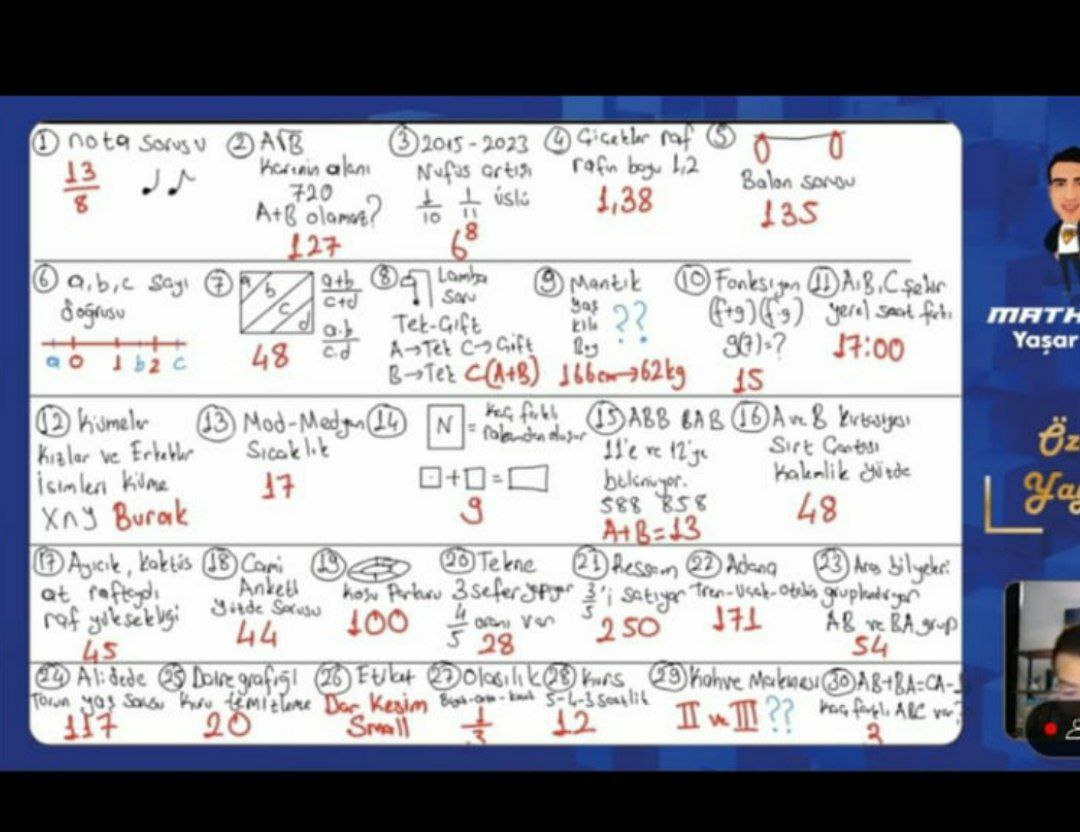 ① nota sorusu
13/8
② A√B
Karenin alanı
720
A+B olamaz?
127
③ 2015-2023
Nüfus artışı
1/10 1/11 üslü
6^8
④ Çiçekler raf
rafın boyu 1,2
1,38
⑤
Balon sorusu
135
⑥ a,b,c sayı
doğrusu
a 0 1 b 2 c
⑦ a b c d
a+b/c+d
a.b/c.d
48
⑧ Lamba
Soru
Tek-Çift
A→Tek C→Çift
B→Tek C(A+B)
⑨ Mantık
yaş
kilo ??
Boy
166cm→62kg
⑩ Fonksiyon
(f+g)(f-g)
g(7)=?
15
⑪ A,B,C şehir
yerel saat farkı
17:00
⑫ Kümeler
Kızlar ve Erkekler
İsimleri küme
X∩Y Burak
⑬ Mod-Medyan
Sıcaklık
17
⑭ N = kaç farklı
rakamdan oluşur
□+□=□
9
⑮ ABB BAB
11'e ve 12'ye
bölünüyor.
588 858
A+B=13
⑯ A ve B Kırtasiyesi
Sırt Çantası
Kalemlik yüzde
48
⑰ Ayıcık, kaktüs
at raftaydı
raf yüksekliği
45
⑱ Cami
Anketi
yüzde Sorusu
44
⑲
Koşu Parkuru
100
⑳ Tekne
3 sefer yapıyor
4/5 oranı var
28
㉑ Ressam
3/5'i satıyor
250
㉒ Adana
Tren-Uçak-Otobüs
171
㉓ Aras bilyeleri
gruplandırıyor
AB ve BA grup
54
㉔ Ali dede
Torun yaş Sorusu
117
㉕ Daire grafiği
Kuru temizleme
20
㉖ Etiket
Dar Kesim
Small
㉗ Olasılık
1/3
㉘ Kurs
5-4-3 saatlik
12
㉙ Kahve Makinesi
II ve III ??
㉚ AB+BA=CA-1
Kaç farklı ABC var?
3
MATH
Yaşar
Öz
Ya